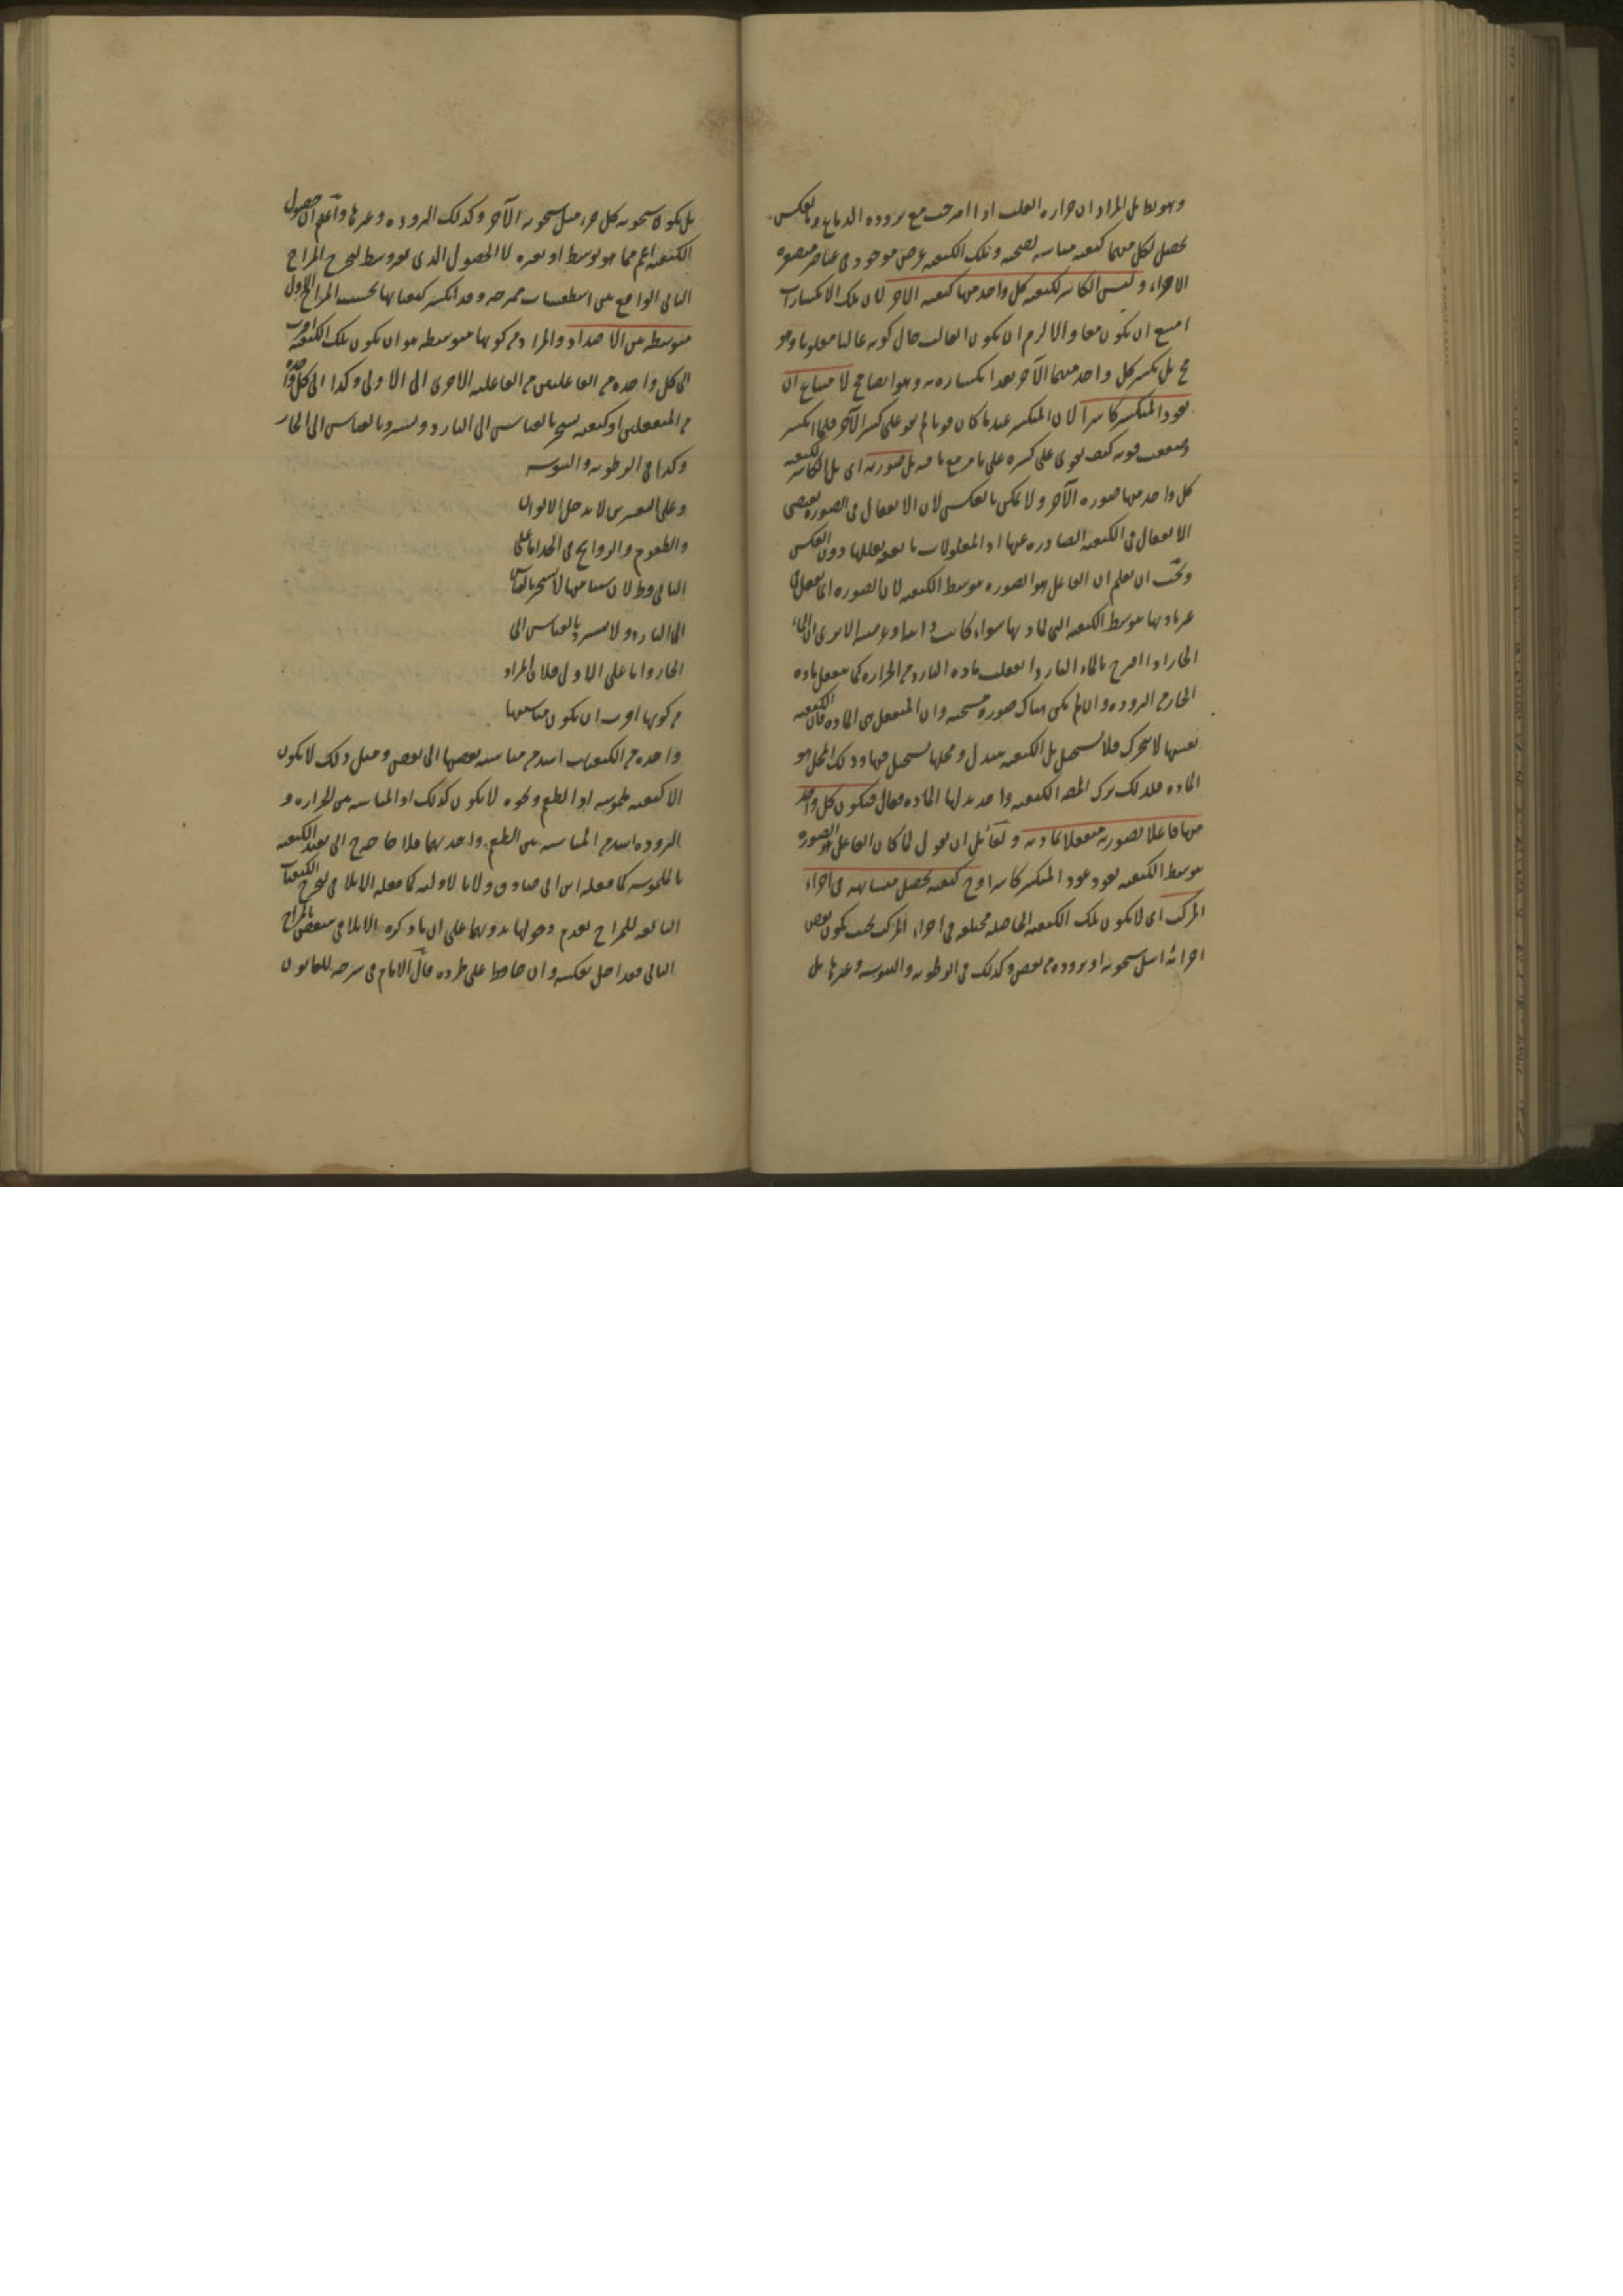 وهو بط بل المراد ان حراره القلب اذا امرحب مع بروده الدماغ وبالعكس
يحصل لكل منهما كيفيه مناسبه لصحته وتلك الكيفيه عرض موجود في عناصر متصغره
الاجزاء وليس الكاسر لكيفيه كل واحد منها كيفيه الاخر لان تلك الانكسارات
امتنع ان تكون معا والا لزم ان يكون الغالب حال كونه غالبا مغلوبا وهو
مح بل يكسر كل واحد منهما الآخر بعد انكساره به وهو ايضا مح لامتناع ان
يعود المنكسر كاسرا لان المنكسر عندما كان قويا لم يقو على كسر الآخر فلما انكسر
وضعفت قوته كيف يقوى على كسره على ما مر مع ما فيه بل صورته اى بل الكاسر لكيفيه
كل واحد منها صوره الآخر ولا يمكن بالعكس لان الانفعال في الصوره يقتضى
الانفعال في الكيفيه الصادره عنها اذ المعلولات تابعه لعللها دون العكس
ويجب ان يعلم ان الفاعل هو الصوره بتوسط الكيفيه لان الصوره انما تفعل في
غير مادتها بتوسط الكيفيه التي لمادتها سواء كانت ذاتيه او عرضيه الا ترى ان الماء
الحار اذا امتزج بالماء البارد انفعلت ماده البارد من الحراره كما تنفعل ماده
الحار من البروده وان لم يكن هناك صوره مسخنه وان المنفعل هي الماده فان الكيفيه
نفسها لا تتحرك فلا تستحيل بل الكيفيه تتبدل ومحلها يستحيل فيها وذلك المحل هو
الماده فلذلك ترك المص الكيفيه واخذ بدلها الماده فقال فيكون كل واحد
منها فاعلا بصورته منفعلا بمادته ولقائل ان يقول لما كان الفاعل هو الصوره
بتوسط الكيفيه يعود عود المنكسر كاسرا وح كيفيه تحصل متشابهه في اجزاء
المركب اى لا تكون تلك الكيفيه الحاصله مختلفه في اجزاء المركب بحيث يكون بعض
اجزائه اشد سخونه او بروده من بعض وكذلك في الرطوبه واليبوسه وغيرها بل
بل يكون سخونه كل جزء مثل سخونه الآخر وكذلك البروده وغيرها واعم ان حصول
الكيفيه اعم مما هو بوسط او بغيره لا الحصول الذى بغير وسط ليخرج المزاج
الثانى الواقع بين اسطقسات ممتزجه وقد انكسر كيفياتها بحسب المزاج الاول
متوسطه بين الاضداد والمراد من كونها متوسطه هو ان يكون تلك الكيفيه اقرب
الى كل واحده من الفاعلتين من الفاعليه الاخرى الى الاولى وكذا الى كل واحده
من المنفعلتين او كيفيه تسخن بالقياس الى البارد وتبرد بالقياس الى الحار
وكذا في الرطوبه واليبوسه
وعلى التفسيرين لا يدخل الالوان
والطعوم والروايح في الحد اما على
الثانى فلان شيئا منها لا تسخن بالقياس
الى البارد ولا تبرد بالقياس الى
الحار واما على الاول فلان المراد
من كونها اقرب ان يكون مناسبتها
واحده من الكيفيات اشد من مناسبه بعضها الى بعض ومثل ذلك لا يكون
الا كيفيه ملموسه اذ الطعم ونحوه لا يكون كذلك اذ المناسبه بين الحراره و
البروده اشد من المناسبه بين الطعم واحدهما فلا حاجه الى تقييد الكيفيه
بالملموسه كما فعله ابن ابى صادق ولا بالاوليه كما فعله الايلاقى ليخرج الكيفيات
التابعه للمزاج لعدم دخولها بدونهما على ان ما ذكره الايلاقى ينتقض بالمزاج
الثانى فقد اخل بعكسه وان حافظ على طرده قال الامام في شرحه للقانون